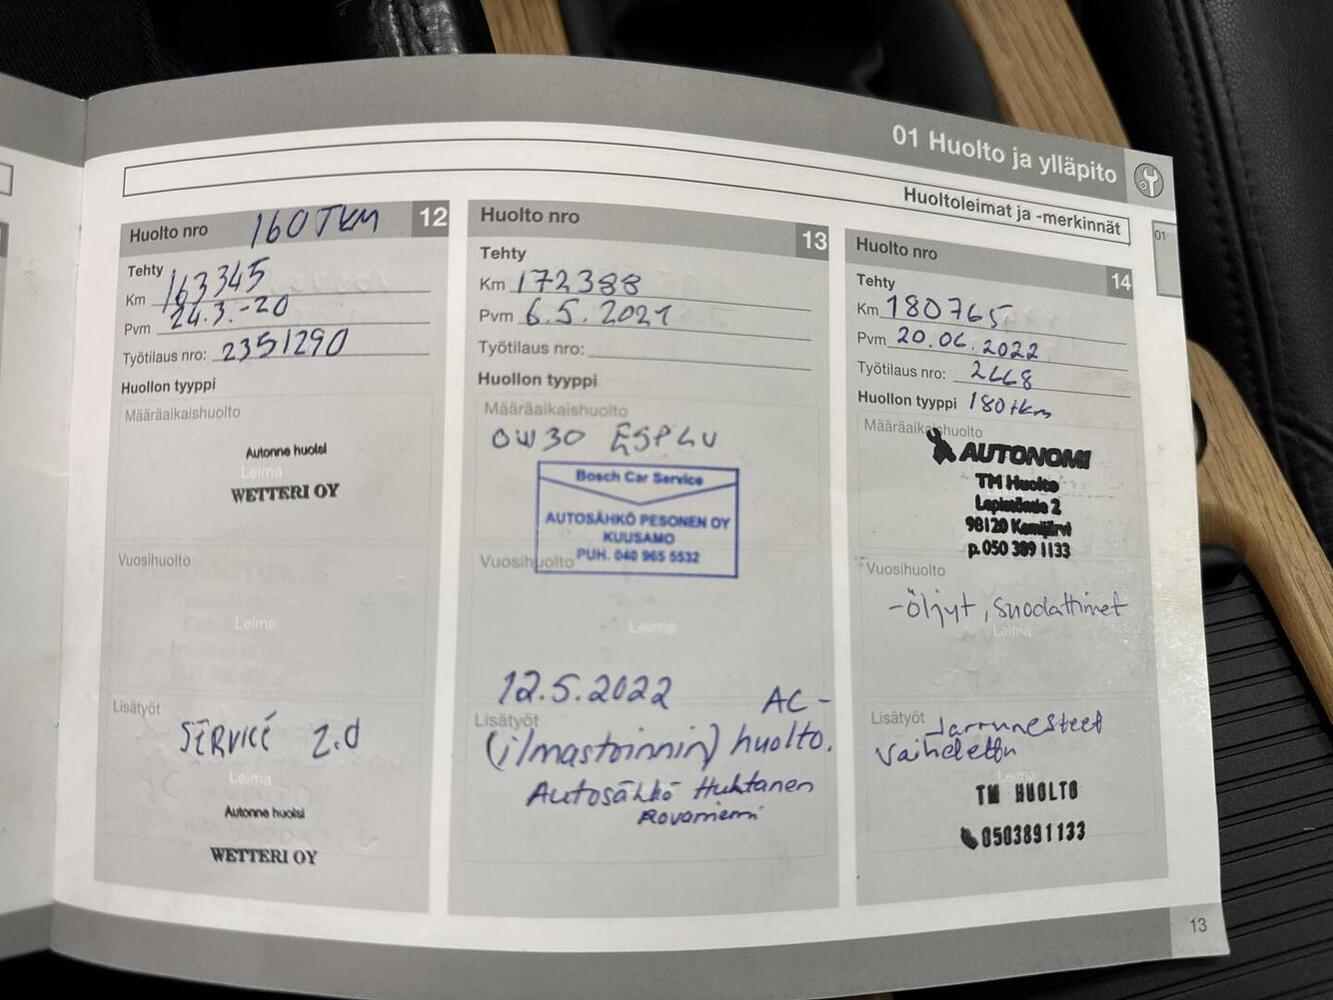 01 Huolto ja ylläpito
Huoltoleimat ja -merkinnät
01
Huolto nro 160TKM 12
Tehty
Km 163345
Pvm 24.3.-20
Työtilaus nro: 2351290
Huollon tyyppi
Määräaikaishuolto
Autonne huolsi
Leima
WETTERI OY
Vuosihuolto
Leima
Lisätyöt
SERVICE 2.0
Leima
Autonne huolsi
WETTERI OY
Huolto nro 13
Tehty
Km 172388
Pvm 6.5.2021
Työtilaus nro:
Huollon tyyppi
Määräaikaishuolto
0W30 ESP4U
Bosch Car Service
AUTOSÄHKÖ PESONEN OY
KUUSAMO
PUH. 040 965 5532
Vuosihuolto
Leima
12.5.2022 AC-
Lisätyöt
(ilmastoinnin) huolto.
Autosähkö Huhtanen
Rovaniemi
Huolto nro 14
Tehty
Km 180765
Pvm 20.06.2022
Työtilaus nro: 2668
Huollon tyyppi 180tkm
Määräaikaishuolto
AUTONOMI
TM Huolto
98120 Kemijärvi
p. 050 389 1133
Vuosihuolto
-öljyt, suodattimet
Leima
Lisätyöt Jarrunesteet
vaihdettu
Leima
TM HUOLTO
0503891133
13